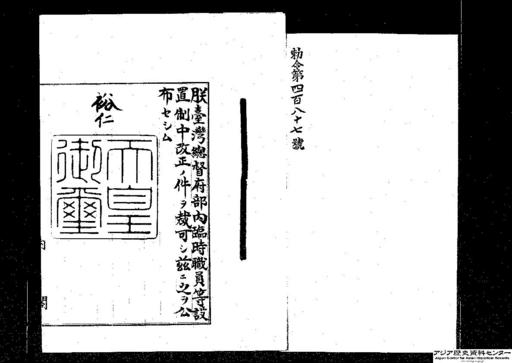 勅令第四百八十七號
朕臺灣總督府部內臨時職員等設
置制中改正ノ件ヲ裁可シ茲ニ之ヲ公
布セシム
裕仁
天皇
御璽
內閣
アジア歴史資料センター
Japan Center for Asian Historical Records